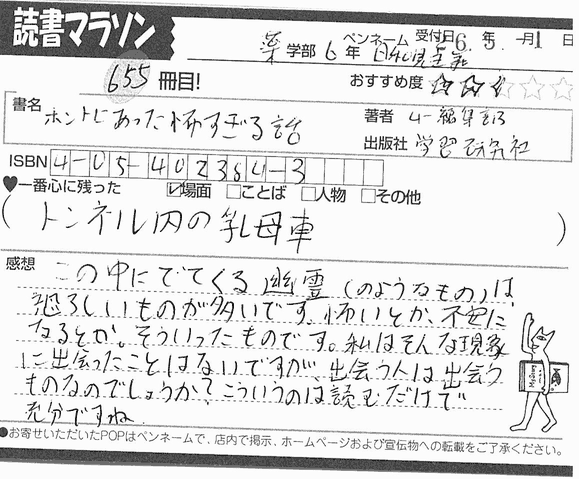 読書マラソン
薬学部6年 ペンネーム 受付日 6.5.-月1日
655冊目! おすすめ度 ☆☆☆☆☆
書名 ホントにあった怖すぎる話 著者 ムー編集部
出版社 学習研究社
ISBN 4-05-402364-3
♥一番心に残った ☑場面 □ことば □人物 □その他
(トンネル内の乳母車)
感想 この中にでてくる幽霊(のようなもの)は
恐ろしいものが多いです。怖いとか、不安に
なるとか。そういったものです。私はそんな現象
に出会ったことはないですが、出会う人は出会う
ものなのでしょうか?こういうのは読むだけで
充分ですね
●お寄せいただいたPOPはペンネームで、店内で掲示、ホームページおよび宣伝物への転載をご了承ください。